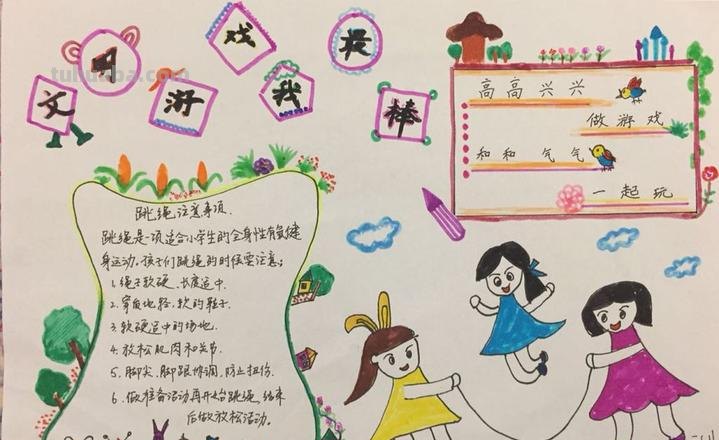 文明游戏我最棒
tuhuaba.com
高高兴兴
做游戏
和和气气
一起玩
跳绳注意事项.
跳绳是一项适合小学生的全身性有氧健
身运动,孩子们跳绳的时候要注意;
1.绳子软硬、长度适中.
2.穿质地轻,软的鞋子.
3.软硬适中的场地.
4.放松肌肉和关节.
5.脚尖、脚跟协调,防止扭伤.
6.做准备活动再开始跳绳,结束
后做放松活动。